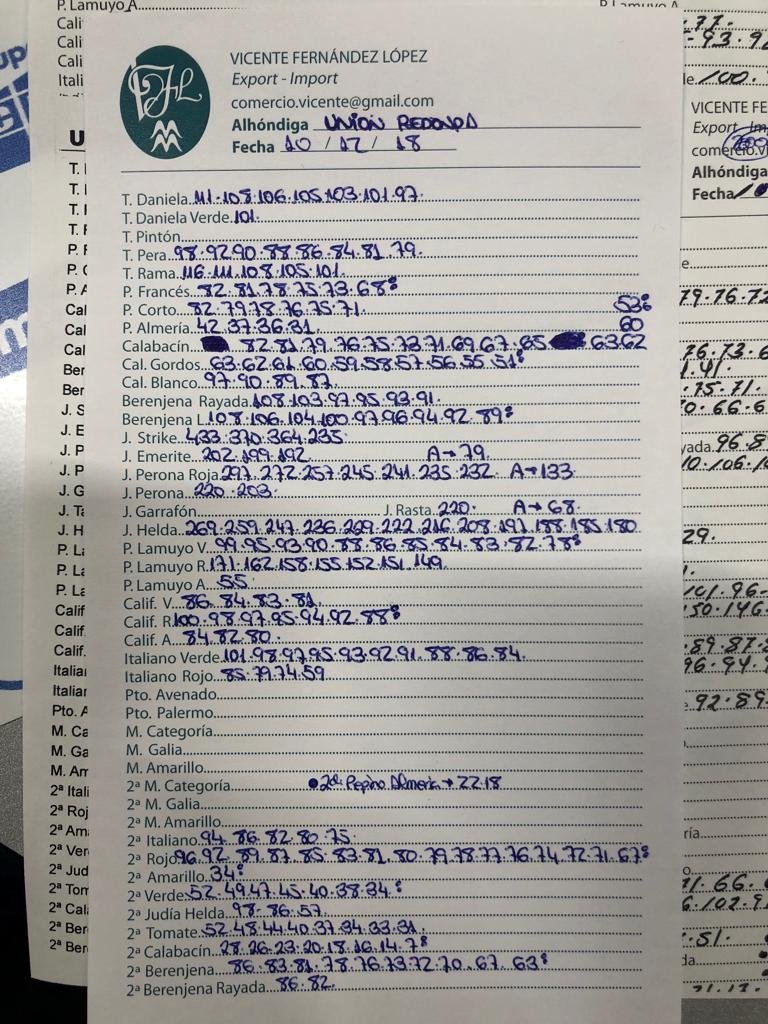 VICENTE FERNÁNDEZ LÓPEZ
Export - Import
comercio.vicente@gmail.com
Alhóndiga UNION REDONDA
Fecha 10 / 12 / 18
T. Daniela 111.108.106.105.103.101.97.
T. Daniela Verde 101.
T. Pintón
T. Pera 98.92.90.88.86.84.81.79.
T. Rama 116.111.108.105.101.
P. Francés 82.81.78.75.73.68
P. Corto 82.79.78.76.75.71. 53
P. Almería 42.37.36.31. 60
Calabacín 82.81.79.76.75.73.71.69.67.65 63.62
Cal. Gordos 63.62.61.60.59.58.57.56.55.51
Cal. Blanco 97.90.89.87.
Berenjena Rayada 108.103.97.95.93.91.
Berenjena L. 108.106.104.100.97.96.94.92.89
J. Strike 433.370.364.235.
J. Emerite 202.199.192. A→79.
J. Perona Roja 297.272.257.245.241.235.232. A→133
J. Perona 220.203.
J. Garrafón J. Rasta 220. A→68.
J. Helda 269.259.247.236.229.222.216.208.197.188.185.180
P. Lamuyo V. 99.95.93.90.88.86.85.84.83.82.78
P. Lamuyo R. 171.162.158.155.152.151.149.
P. Lamuyo A. 55.
Calif. V. 86.84.83.81.
Calif. R. 100.98.97.95.94.92.88
Calif. A. 84.82.80.
Italiano Verde 101.98.97.95.93.92.91.88.86.84.
Italiano Rojo 85.79.74.59
Pto. Avenado
Pto. Palermo
M. Categoría
M. Galia
M. Amarillo
2ª M. Categoría 2da Pepino Almeria → 22.18
2ª M. Galia
2ª M. Amarillo
2ª Italiano 94.86.82.80.75.
2ª Rojo 96.92.89.87.85.83.81.80.79.78.77.76.74.72.71.67
2ª Amarillo 34
2ª Verde 52.49.47.45.40.38.34
2ª Judía Helda 98.86.57.
2ª Tomate 52.48.44.40.37.34.33.31.
2ª Calabacín 28.26.23.20.18.16.14.7
2ª Berenjena 86.83.81.78.76.73.72.70.67.63
2ª Berenjena Rayada 86.82.